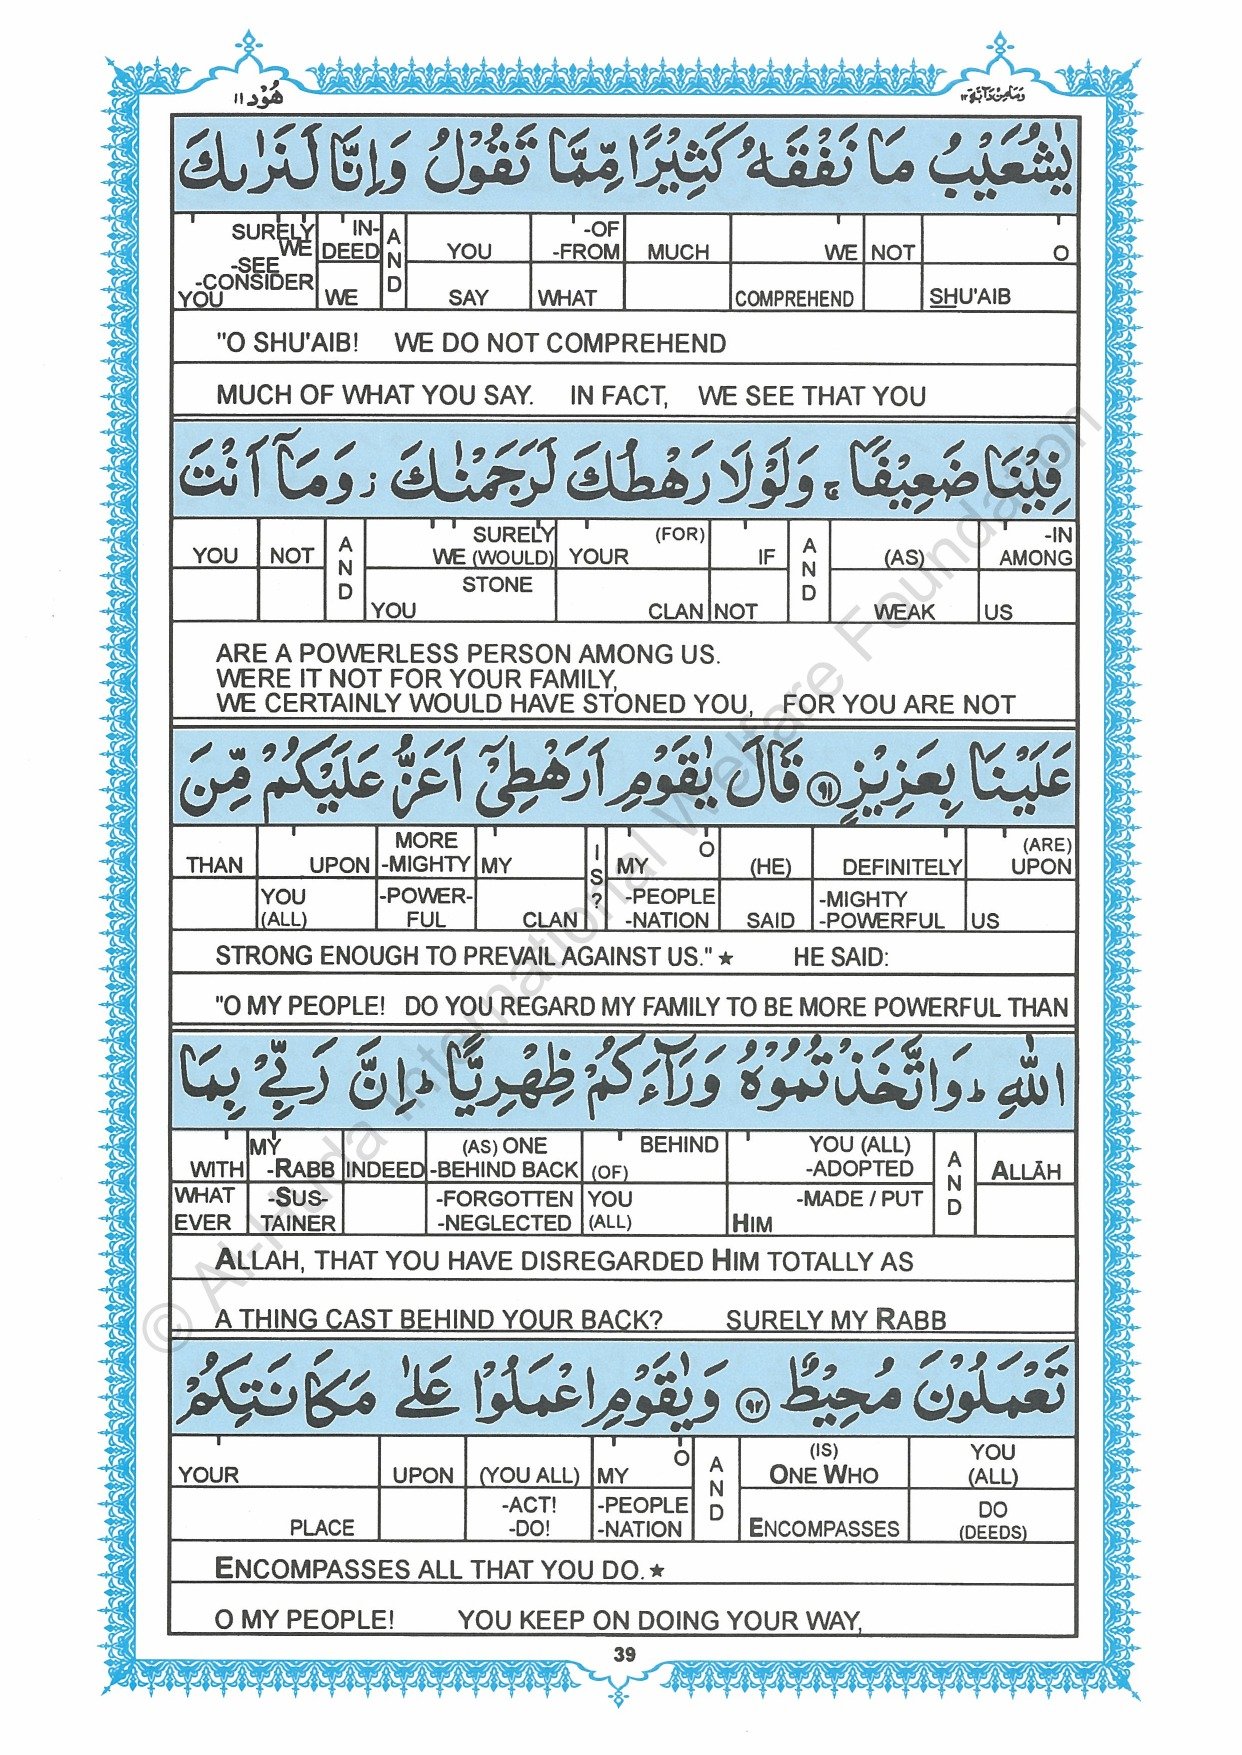 هُوْد ١١
وَمَا مِنْ دَآبَّةٍ ١٢
يٰشُعَيْبُ مَا نَفْقَهُ كَثِيْرًا مِّمَّا تَقُوْلُ وَاِنَّا لَنَرٰىكَ
SURELY IN- A YOU -OF MUCH WE NOT O
WE DEED N -FROM
-SEE
-CONSIDER WE D SAY WHAT COMPREHEND SHU'AIB
YOU
"O SHU'AIB! WE DO NOT COMPREHEND
MUCH OF WHAT YOU SAY. IN FACT, WE SEE THAT YOU
فِيْنَا ضَعِيْفًا ۚ وَلَوْلَا رَهْطُكَ لَرَجَمْنٰكَ ز وَمَآ اَنْتَ
YOU NOT A SURELY YOUR (FOR) IF A (AS) -IN
N WE (WOULD) N AMONG
D STONE D
YOU CLAN NOT WEAK US
ARE A POWERLESS PERSON AMONG US.
WERE IT NOT FOR YOUR FAMILY,
WE CERTAINLY WOULD HAVE STONED YOU, FOR YOU ARE NOT
عَلَيْنَا بِعَزِيْزٍ ٩١ قَالَ يٰقَوْمِ اَرَهْطِىْٓ اَعَزُّ عَلَيْكُمْ مِّنَ
THAN UPON MORE MY I MY O (HE) DEFINITELY (ARE)
-MIGHTY S UPON
YOU -POWER- ? -PEOPLE -MIGHTY
(ALL) FUL CLAN -NATION SAID -POWERFUL US
STRONG ENOUGH TO PREVAIL AGAINST US." ★ HE SAID:
"O MY PEOPLE! DO YOU REGARD MY FAMILY TO BE MORE POWERFUL THAN
اللّٰهِ ؕ وَاتَّخَذْتُمُوْهُ وَرَآءَكُمْ ظِهْرِيًّا ؕ اِنَّ رَبِّيْ بِمَا
MY (AS) ONE BEHIND YOU (ALL) A
WITH -RABB INDEED -BEHIND BACK (OF) -ADOPTED N ALLĀH
WHAT -SUS- -FORGOTTEN YOU -MADE / PUT D
EVER TAINER -NEGLECTED (ALL) HIM
ALLAH, THAT YOU HAVE DISREGARDED HIM TOTALLY AS
A THING CAST BEHIND YOUR BACK? SURELY MY RABB
تَعْمَلُوْنَ مُحِيْطٌ ٩٢ وَيٰقَوْمِ اعْمَلُوْا عَلٰى مَكَانَتِكُمْ
YOUR UPON (YOU ALL) MY O A (IS) YOU
N ONE WHO (ALL)
-ACT! -PEOPLE D DO
PLACE -DO! -NATION ENCOMPASSES (DEEDS)
ENCOMPASSES ALL THAT YOU DO. ★
O MY PEOPLE! YOU KEEP ON DOING YOUR WAY,
39
© Al-Huda International Welfare Foundation